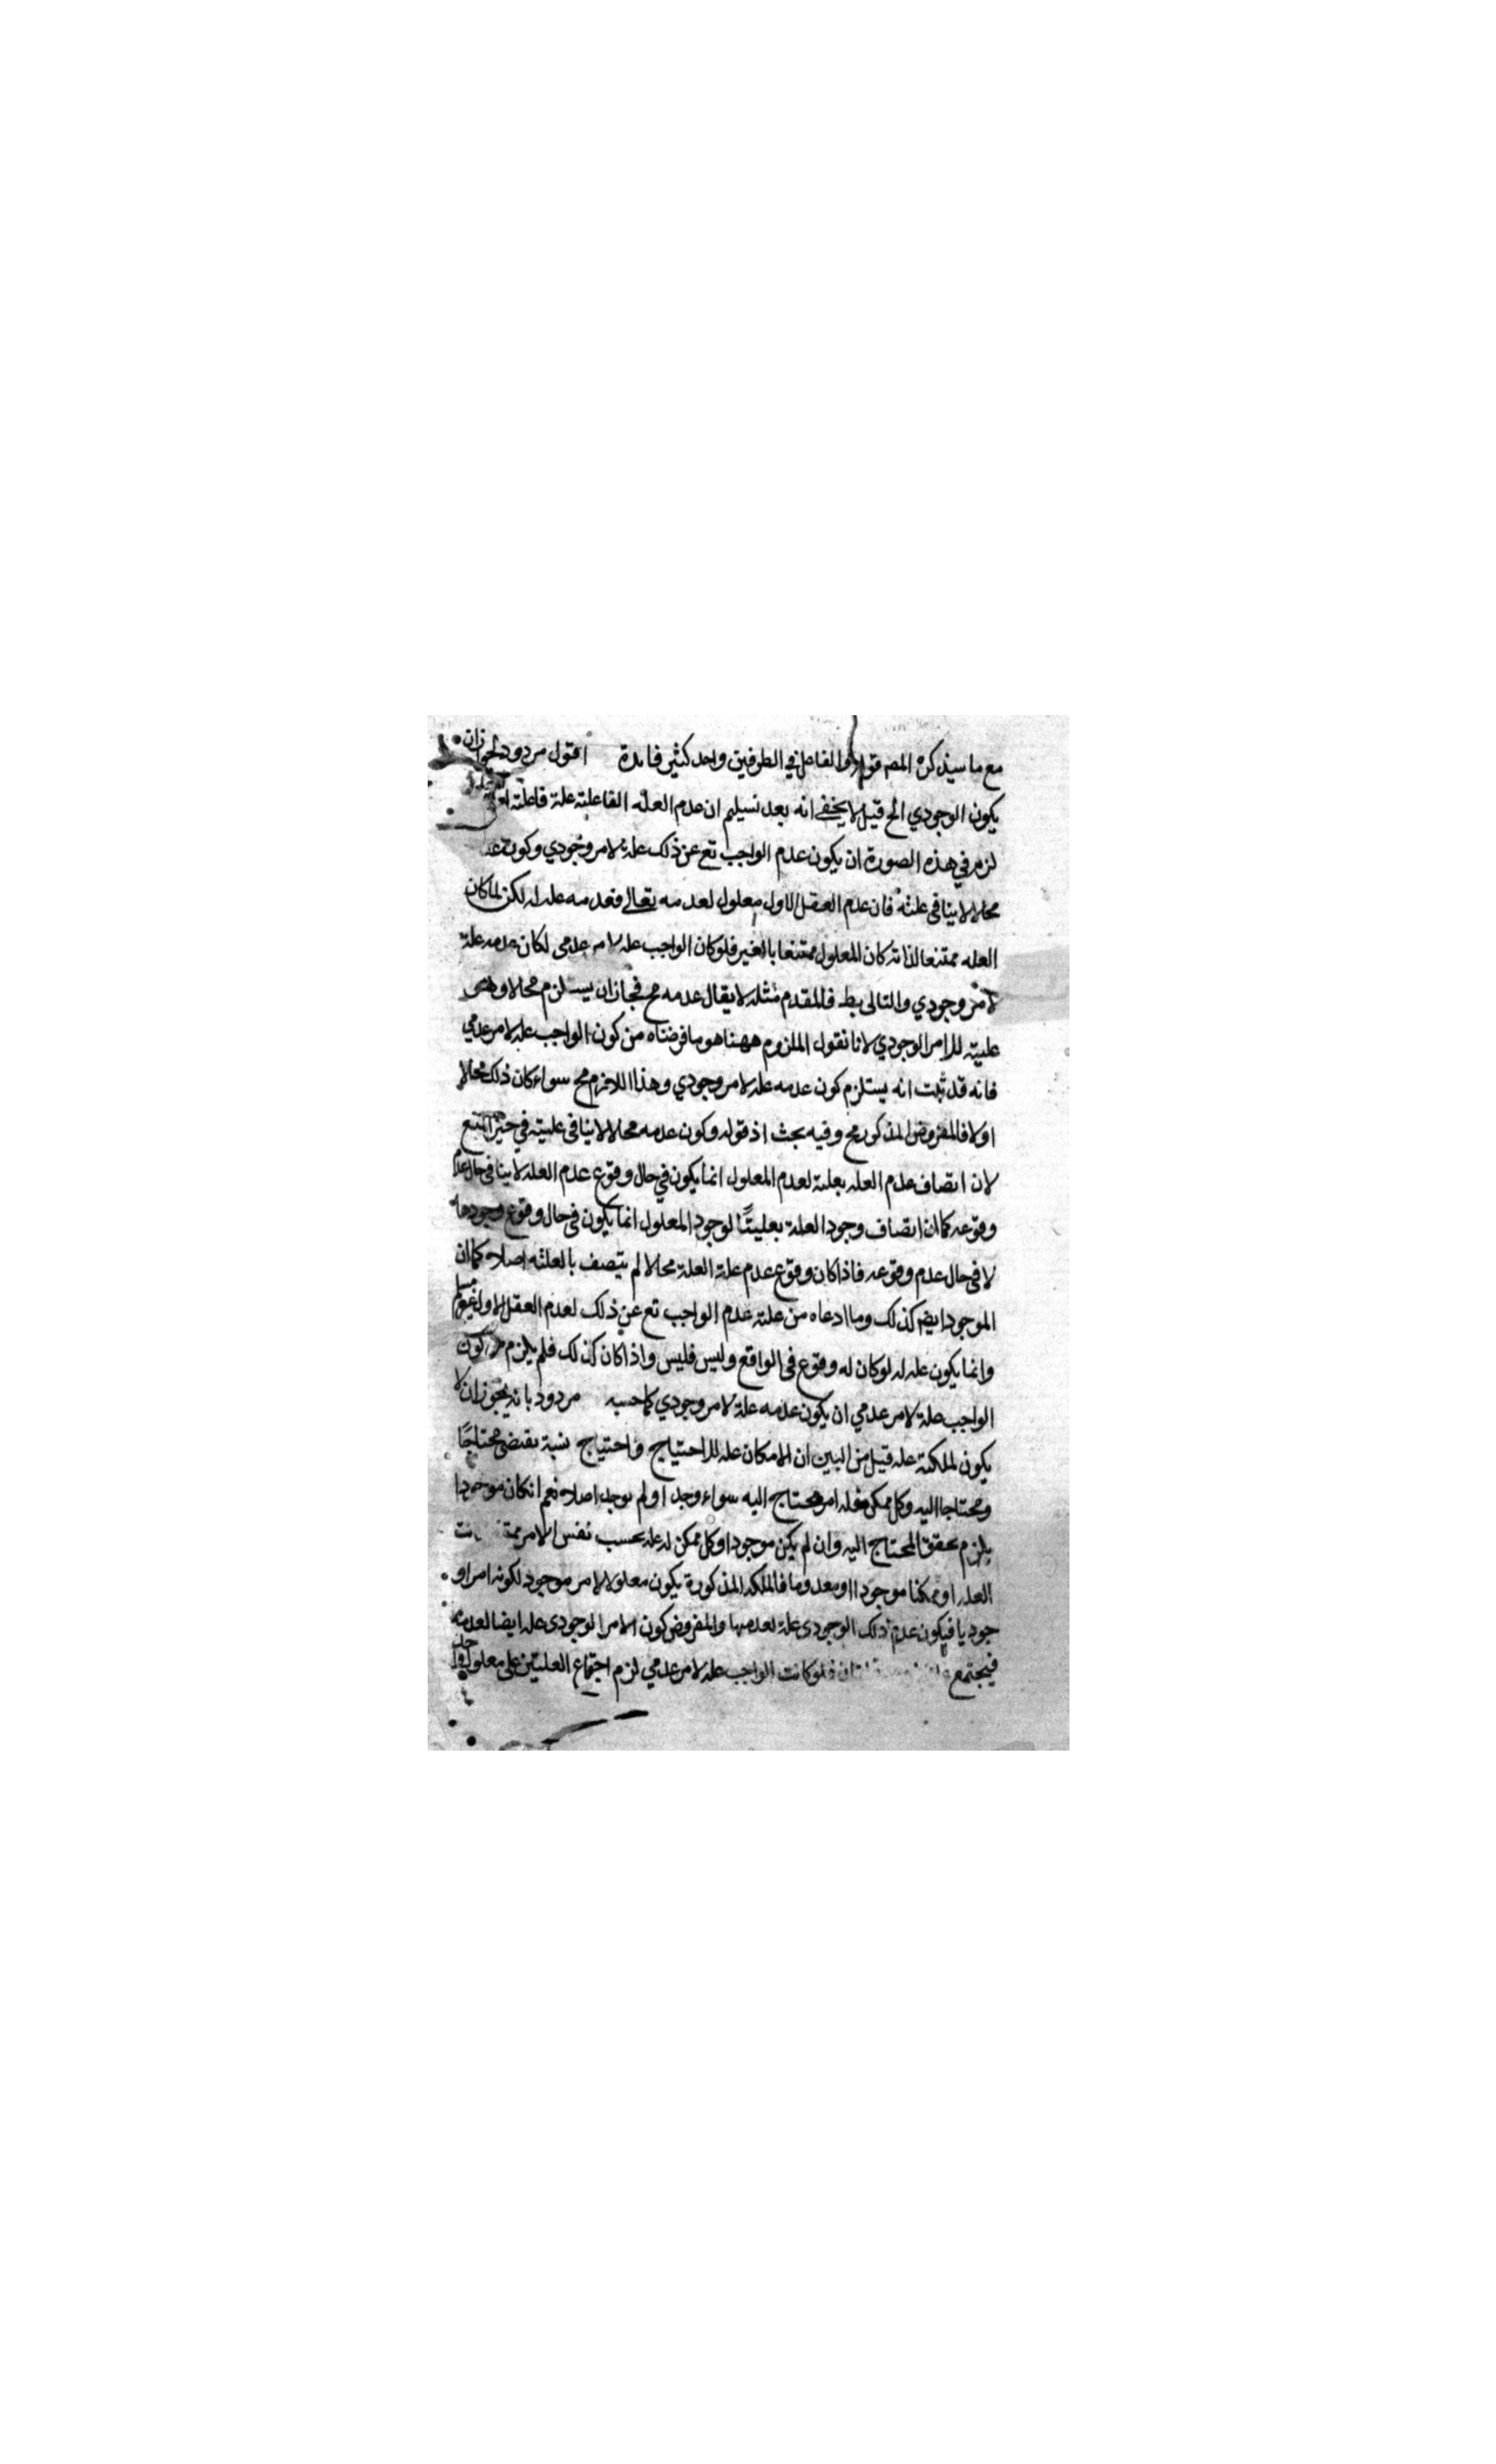 مع ما سيذكره المصـ قوله والفاعل في الطرفين واحد كثير فايدة اقول مردود لجواز ان
يكون الوجودي الخ قيل لا يخفى انه بعد تسليم ان عدم العلة الفاعلية علة فاعلية
لزم في هذه الصورة ان يكون عدم الواجب تع عن ذلك علة لامر وجودي وكون
محالا لا ينافى عليته فان عدم العقل الاول معلول لعدمه تعالى فعدمه علة له لكن لما كان
العله ممتنعا لذاته كان المعلول ممتنعا بالغير فلو كان الواجب علة لامر عدمى لكان عدمه علة
لامر وجودي والتالى بط فالمقدم مثله لا يقال عدمه مح فجاز ان يستلزم محالا وهى
عليته للامر الوجودي لانا نقول الملزوم ههنا هو ما فرضناه من كون الواجب علة لامر عدمي
فانه قد ثبت انه يستلزم كون عدمه علة لامر وجودي وهذا اللازم مح سواء كان ذلك محالا
اولا فالمفروض المذكور مح وفيه بحث اذ قوله وكون عدمه محالا لا ينافى عليته في حيز المنع
لان اتصاف عدم العله بعلية لعدم المعلول انما يكون في حال وقوع عدم العله لا ينافى حال عدم
وقوعه كما ان اتصاف وجود العلة بعليتها لوجود المعلول انما يكون فى حال وقوع وجودها
لا فى حال عدم وقوعه فاذا كان وقوع عدم علة العلة محالا لم يتصف بالعلية اصلا كما ان
الموجود ايضـ كذلك وما ادعاه من علية عدم الواجب تع عن ذلك لعدم العقل الاول غير مسلم
وانما يكون علة له لو كان له وقوع فى الواقع وليس فليس واذا كان كذلك فلم يلزم من كون
الواجب علة لامر عدمي ان يكون عدمه علة لامر وجودي كما حسبه مردود بانه يجوز ان لا
يكون لملكته علة قيل من البين ان الامكان علة للاحتياج واحتياج نسبة يقتضى محتاجا
ومحتاجا اليه وكل ممكن فله امر محتاج اليه سواء وجد او لم يوجد اصلا نعم ان كان موجودا
يلزم تحقق المحتاج اليه وان لم يكن موجودا وكل ممكن له علة بحسب نفس الامر
العله او ممكنا موجودا او معدوما فالملكه المذكورة يكون معلولا لامر موجود لكونه امرا و
جوديا فيكون عدم ذلك الوجودى علة لعدمها والمفروض كون الامر الوجودى علة ايضا لعدمه
فيجتمع فلو كانت الواجب علة لامر عدمي لزم اجتماع العلتين على معلول واحد